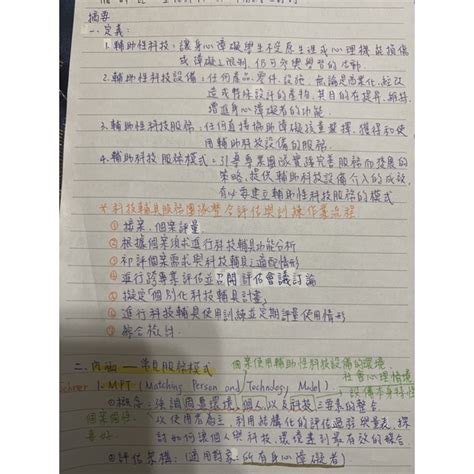 摘要
一.定義:
1.輔助性科技:讓身心障礙學生不受原生理或心理機能損傷
或障礙之限制,仍可參與學習的活動.
2.輔助性科技設備:任何產品.零件.設施,無論是商業化.經改
造或特殊設計的產物,其目的在提升.維持.
增進身心障礙者的功能.
3.輔助性科技服務:任何直接協助障礙孩童選擇.獲得和使
用輔助科技設備的服務.
4.輔助科技服務模式:引導專業團隊實踐完善服務而發展的
策略,提供輔助科技設備介入的成效,
有必要建立輔助性科技服務的模式
*科技輔具服務團隊整合評估與訓練作業流程
① 個案評量
② 根據個案須求進行科技輔具功能分析
③ 初評個案需求與科技輔具之適配情形
④ 進行跨專業評估並召開評估會議討論
⑤ 擬定「個別化科技輔具計畫」
⑥ 進行科技輔具使用訓練並定期評量使用情形
⑦
二.內 常見服務模式
個案使用輔助性科技設備的環境
社會心理情境
1.MPT(Matching Person and Technology Model)
⑴概念:強調周遭環境,個人,以及科技三要素的整合
以使用者為主,利用結構化的評估過程與量表,探
討如何讓個人與科技,環境達到最有效的融合.
⑵評估架構:(適用對象:所有身心障礙者)